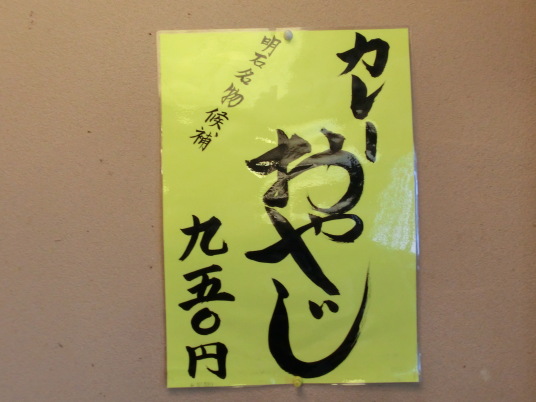 カレー
おやじ
明石名物候補
九五〇円